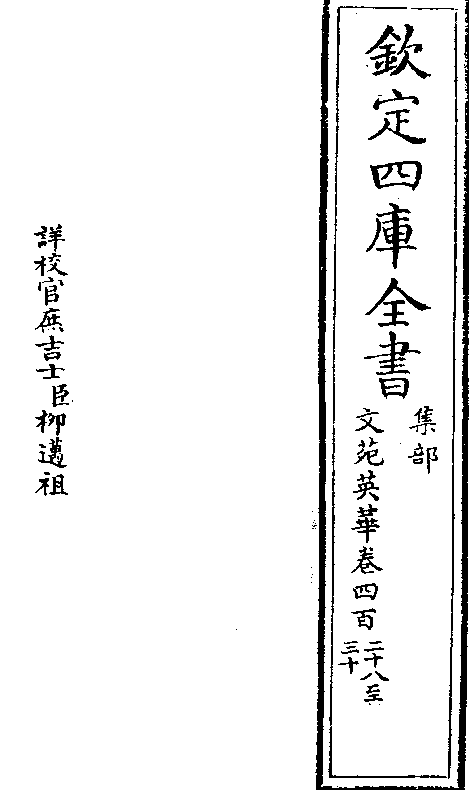 欽定四庫全書
集部
文苑英華卷四百
二十八至
三十
詳校官庶吉士臣柳邁祖